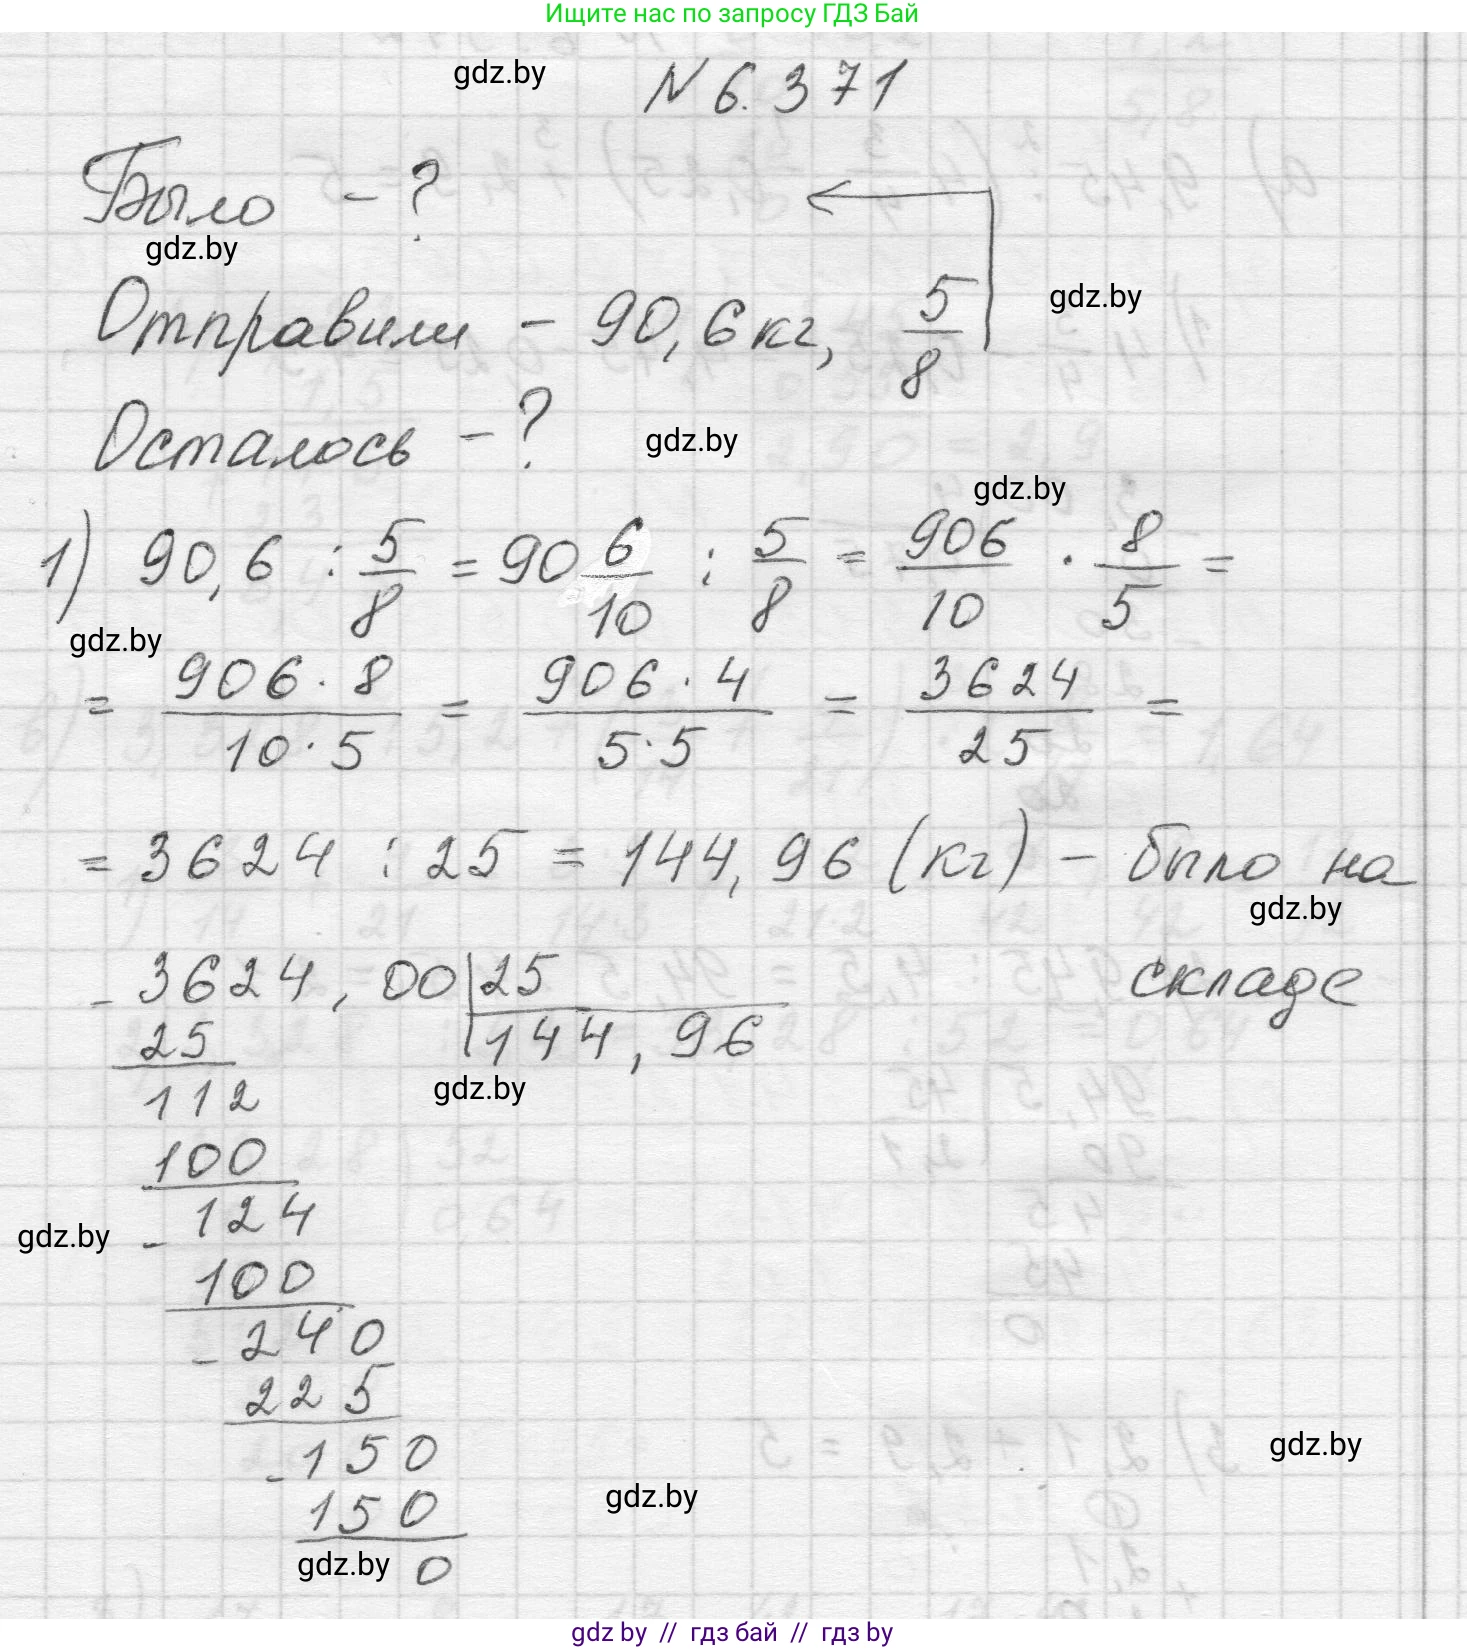 Ищите нас по запросу ГДЗ Бай
gdz.by
N 6.371
Было - ?
gdz.by
Отправили - 90,6 кг, 5/8
gdz.by
Осталось - ?
gdz.by
gdz.by
1) 90,6 : 5/8 = 90 6/10 : 5/8 = 906/10 · 8/5 =
gdz.by
= 906·8/10·5 = 906·4/5·5 = 3624/25 =
= 3624 : 25 = 144,96 (кг) - было на
gdz.by
складе
- 3624,00 | 25
25 | 144,96
gdz.by
112
100
gdz.by
- 124
100
- 240
225
gdz.by
- 150
gdz.by
150
gdz.by
0
gdz by // гдз бай // гдз by